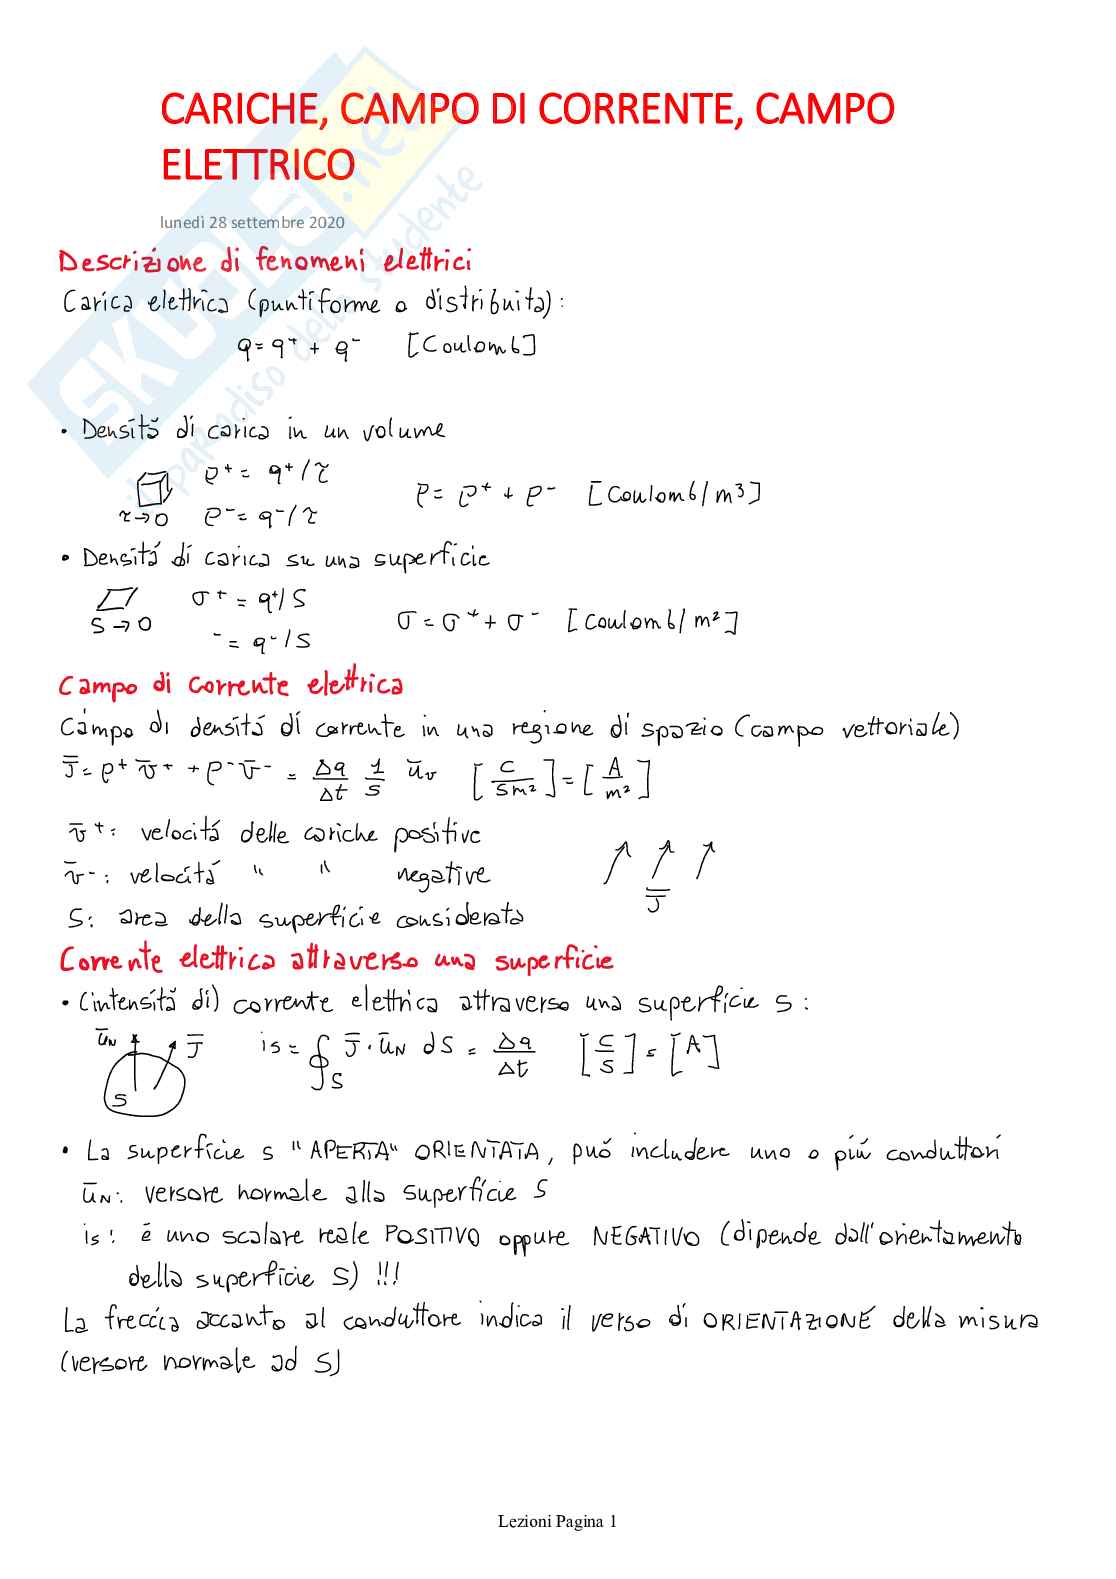 CARICHE, CAMPO DI CORRENTE, CAMPO
ELETTRICO
lunedì 28 settembre 2020
SKUOLA.net
il paradiso dello studente
Descrizione di fenomeni elettrici
Carica elettrica (puntiforme o distribuita):
q = q⁺ + q⁻ [Coulomb]
• Densitá di carica in un volume
ρ⁺ = q⁺/τ
τ→0 ρ⁻ = q⁻/τ ρ = ρ⁺ + ρ⁻ [Coulomb/m³]
• Densitá di carica su una superficie
σ⁺ = q⁺/S
S→0 ⁻ = q⁻/S σ = σ⁺ + σ⁻ [Coulomb/m²]
Campo di corrente elettrica
Campo di densitá di corrente in una regione di spazio (campo vettoriale)
J̅ = ρ⁺ v̅⁺ + ρ⁻ v̅⁻ = Δq/Δt 1/S u̅ᵥ [C/sm²] = [A/m²]
v̅⁺: velocitá delle cariche positive
v̅⁻: velocitá " " negative
J̅
S: area della superficie considerata
Corrente elettrica attraverso una superficie
• (intensitá di) corrente elettrica attraverso una superficie S:
u̅N J̅ S is = ∮S J̅ · u̅N dS = Δq/Δt [C/s] = [A]
• La superficie S "APERTA" ORIENTATA, puó includere uno o piú conduttori
u̅N: versore normale alla superficie S
is: é uno scalare reale POSITIVO oppure NEGATIVO (dipende dall'orientamento
della superficie S) !!!
La freccia accanto al conduttore indica il verso di ORIENTAZIONE della misura
(versore normale ad S)
Lezioni Pagina 1